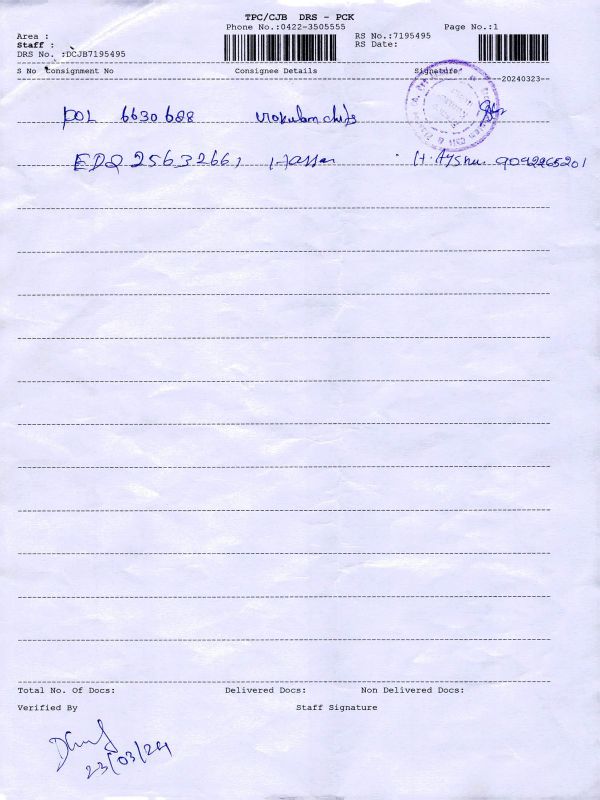 TPC/CJB DRS - PCK
Phone No.:0422-3505555
Page No.:1
Area :
RS No.:7195495
Staff :
RS Date:
DRS No. :DCJB7195495
S No Consignment No Consignee Details Signature
20240323
POL 6630688
EDQ 25632661 Hassan 9092265201
Total No. Of Docs: Delivered Docs: Non Delivered Docs:
Verified By Staff Signature
23/03/24